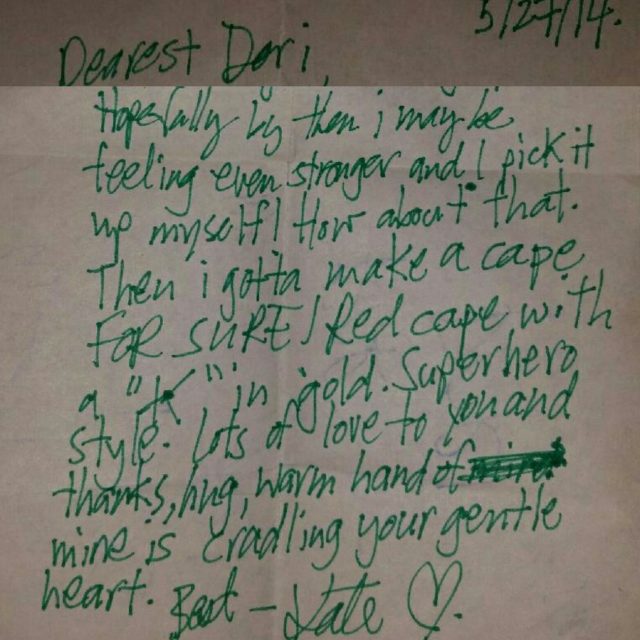 5/27/14.
Dearest Dori,
Hopefully by then i may be
feeling even stronger and I pick it
up myself! How about that.
Then i gotta make a cape
FOR SURE! Red cape with
a "K" in gold. Superhero
style. Lots of love to you and
thanks, hug, warm hand of
mine is cradling your gentle
heart. Best - Kate ♡.